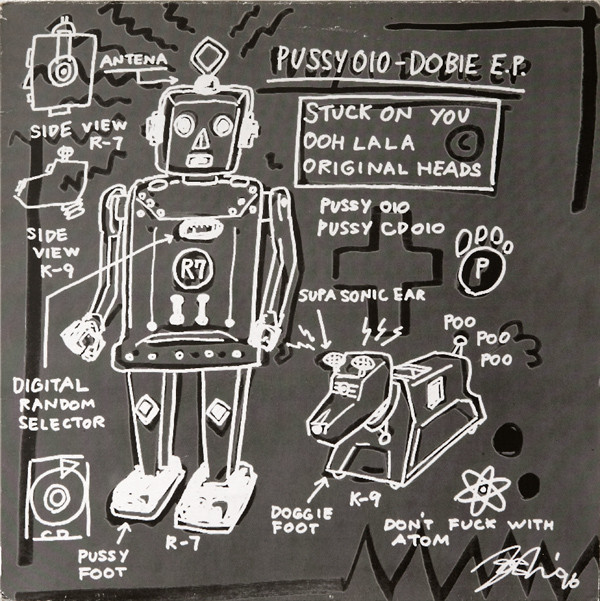 ANTENA
PUSSY 010 - DOBIE E.P.
SIDE VIEW
R-7
STUCK ON YOU
OOH LALA
ORIGINAL HEADS
C
PUSSY 010
PUSSY CD010
P
SIDE
VIEW
K-9
R7
SUPA SONIC EAR
POO
POO
POO
DIGITAL
RANDOM
SELECTOR
CD
PUSSY
FOOT
R-7
DOGGIE
FOOT
K-9
DON'T FUCK WITH
ATOM
'96